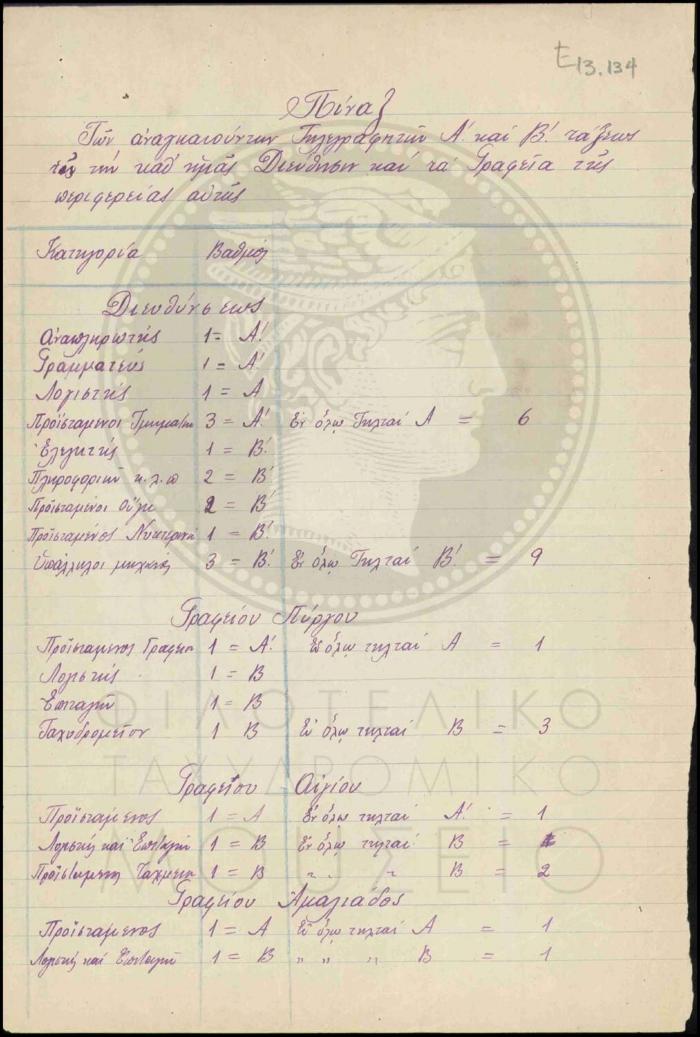 E13.134
Πίναξ
Τῶν ἀναγκαιούντων Τηλεγραφητῶν Α΄. καὶ Β΄. τάξεως
τὴν καθ' ἡμᾶς Διεύθησιν καὶ τὰ Γραφεῖα τῆς
περιφερείας αὐτῆς
Κατηγορία Βαθμοί
Διευθύνσεως
Ἀναπληρωτής 1 = Α΄.
Γραμματεύς 1 = Α΄
Λογιστής 1 = Α
Προϊστάμενοι 3 = Α΄. Ἐν ὅλῳ Τηλταί Α = 6
Ἐλεγκτής 1 = Β΄.
Πληροφοριῶν κ.λ.π 2 = Β΄
Προϊστάμενοι 2 = Β΄
Προϊστάμενος 1 = Β΄.
Ὑπάλληλοι μηχανῆς 3 = Β΄. Ἐν ὅλῳ Τηλταί Β΄. = 9
Γραφείου Πύργου
Προϊστάμενος Γραφείου 1 = Α΄. Ἐν ὅλῳ τηλταί Α = 1
Λογιστής 1 = Β
Ἐπιταγῶν 1 = Β
Ταχυδρομεῖον 1 Β Ἐν ὅλῳ τηλταί Β = 3
ΦΙΛΟΤΕΛΙΚΟ
ΤΑΧΥΔΡΟΜΙΚΟ
ΜΟΥΣΕΙΟ
Γραφείου Αἰγίου
Προϊστάμενος 1 = Α Ἐν ὅλῳ τηλταί Α΄. = 1
Λογιστής καὶ Ἐπιταγῶν 1 = Β Ἐν ὅλῳ τηλταί Β =
Προϊστάμενος 1 = Β " " " Β = 2
Γραφείου Ἀμαλιάδος
Προϊστάμενος 1 = Α Ἐν ὅλῳ τηλταί Α = 1
Λογιστής καὶ Ἐπιταγῶν 1 = Β " " " " Β = 1